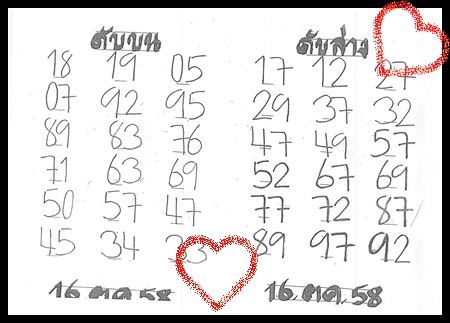 ดับบน
18 19 05
07 92 95
89 83 76
71 63 69
50 57 47
45 34
16 ต.ค. 58
ดับล่าง
17 12 27
29 37 32
47 49 57
52 67 69
77 72 87
89 97 92
16 ต.ค. 58